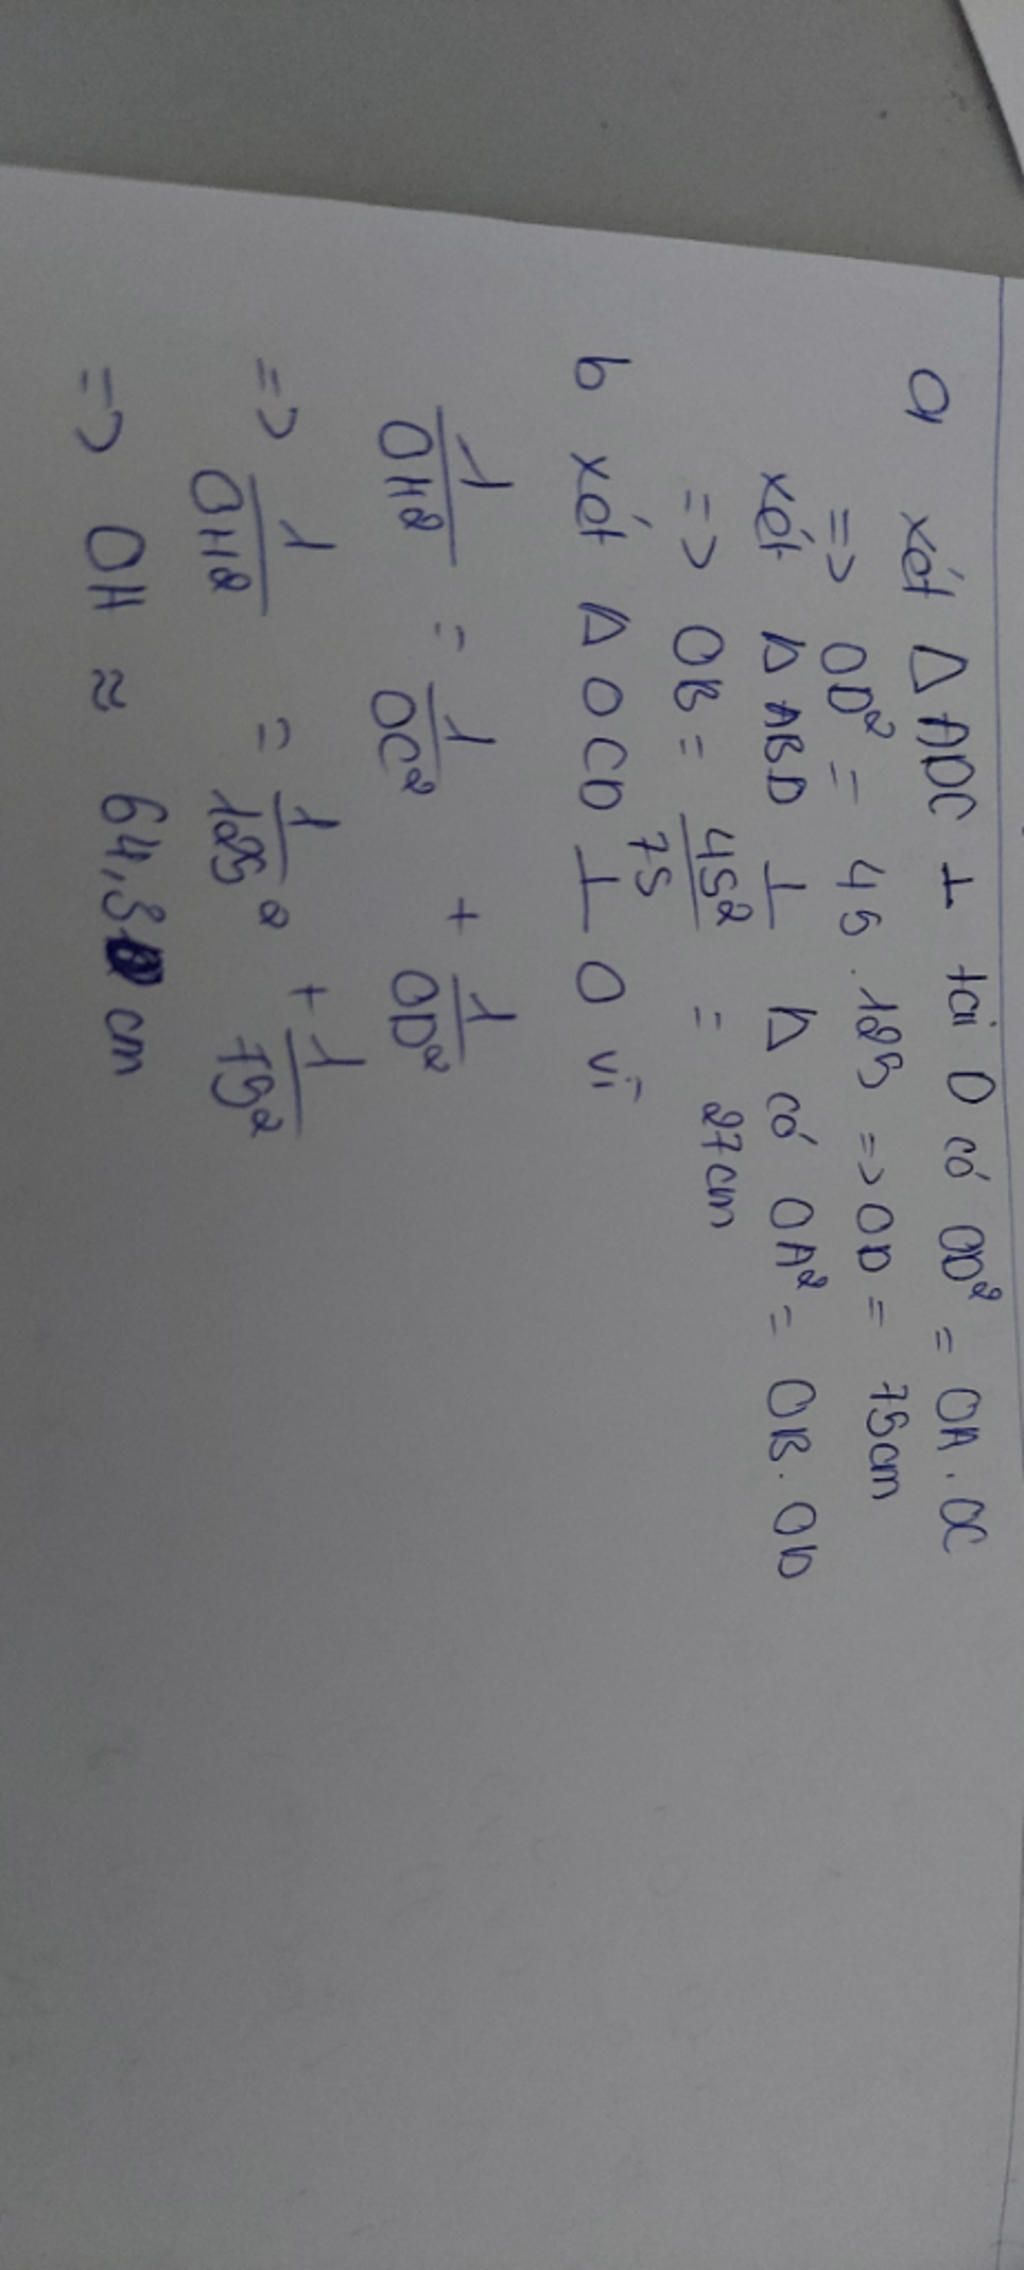 a xét Δ ADC ⊥ tại D có OD² = OA . OC
=> OD² = 45 . 125 => OD = 75cm
xét Δ ABD ⊥ Δ có OA² = OB . OD
=> OB = 45²/75 = 27cm
b xét Δ OCD ⊥ O vì
1/OH² = 1/OC² + 1/OD²
=> 1/OH² = 1/125² + 1/75²
=> OH ≈ 64,3 cm